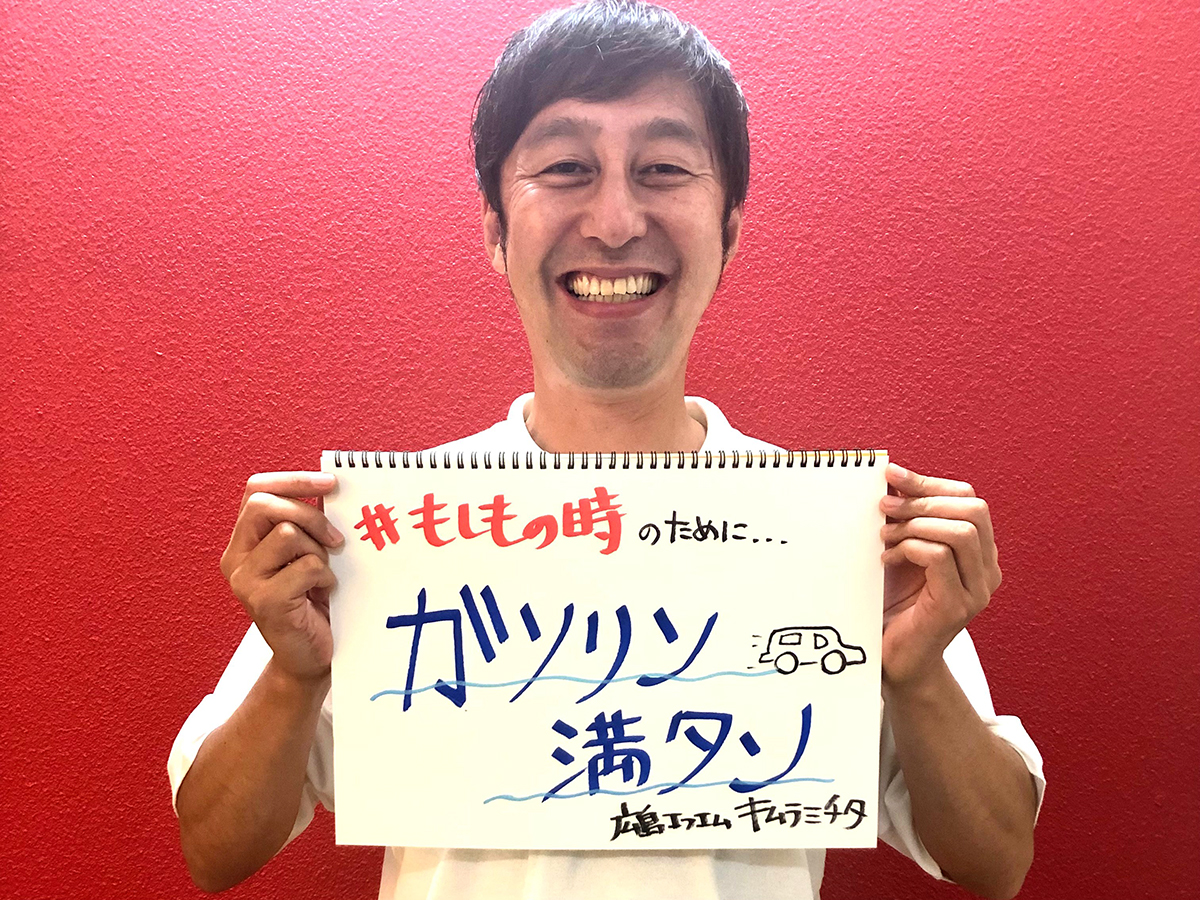 #もしもの時のために...
ガソリン
満タン
広島エフエム キムラミチタ